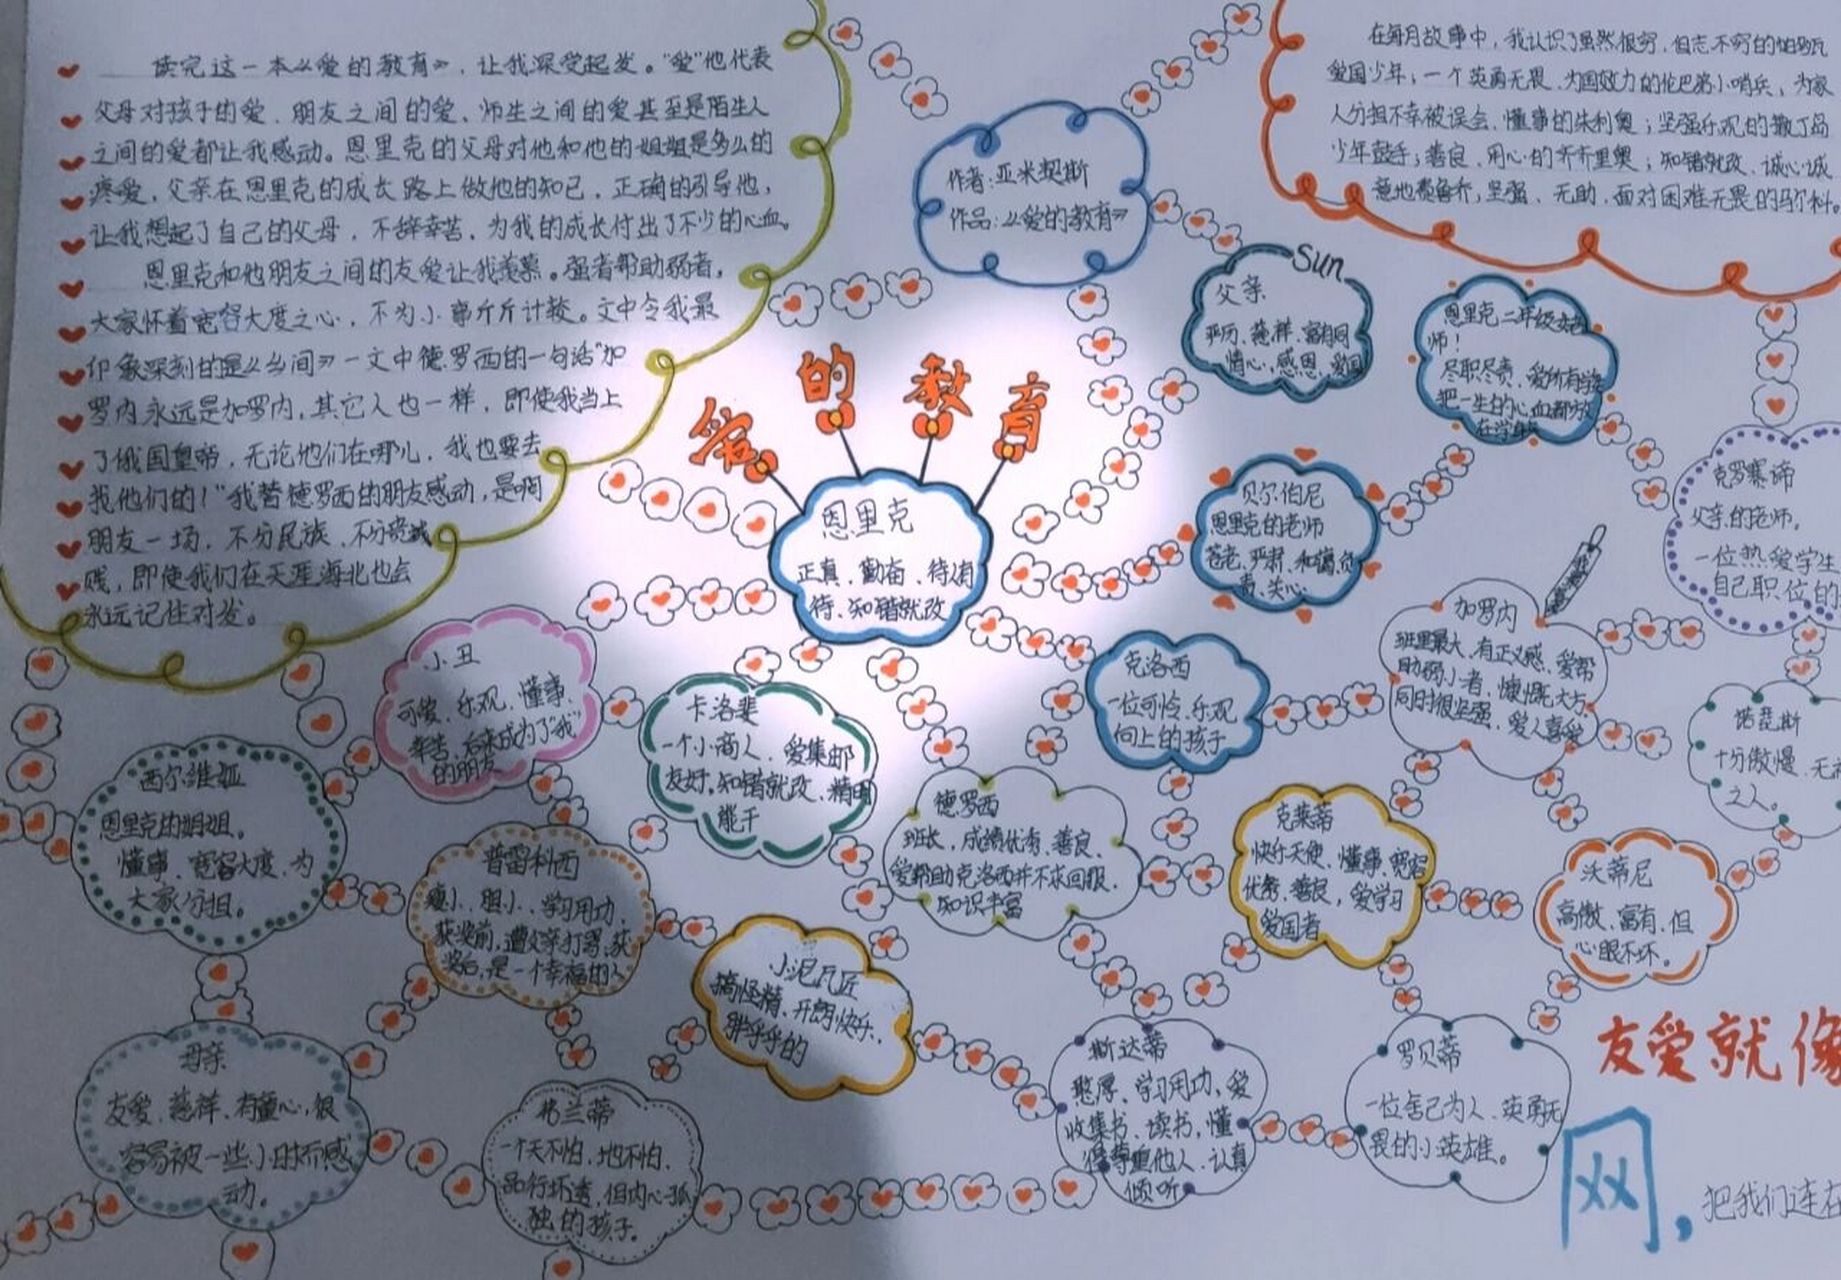 读完这一本《爱的教育》，让我深受起发。“爱”他代表
父母对孩子的爱、朋友之间的爱、师生之间的爱甚至是陌生人
之间的爱都让我感动。恩里克的父母对他和他的姐姐是多么的
疼爱，父亲在恩里克的成长路上做他的知己，正确的引导他，
让我想起了自己的父母，不辞幸苦，为我的成长付出了不少的心血。
恩里克和他朋友之间的友爱让我羡慕。强者帮助弱者，
大家怀着宽容大度之心，不为小事斤斤计较。文中令我最
印象深刻的是《乡间》一文中德罗西的一句话“加
罗内永远是加罗内，其它人也一样，即使我当上
了俄国皇帝，无论他们在哪儿，我也要去
找他们的！”我替德罗西的朋友感动，是啊
朋友一场，不分民族，不分贵贱
贱，即使我们在天涯海北也会
永远记住对发。
作者：亚米契斯
作品：《爱的教育》
在每月故事中，我认识了虽然很穷，但志不穷的帕多瓦
爱国少年；一个英勇无畏、为国效力的伦巴第小哨兵，为家
人分担不幸被误会、懂事的朱利奥；坚强乐观的撒丁岛
少年鼓手；善良、用心的齐齐里奥；知错就改、诚心诚
意地费鲁乔，坚强、无助，面对困难无畏的马尔科。
Sun
父亲
严厉、慈祥、富有同
情心，感恩、爱国
恩里克二年级女老
师！
尽职尽责、爱所有学生
把一生的心血都放
在学
爱的教育
恩里克
正真、勤奋、待人有
待、知错就改
贝尔伯尼
恩里克的老师
苍老、严肃、和蔼、负
责、关心
克罗塞谛
父亲的老师。
一位热爱学生
自己职位的
加罗内
班里最大、有正义感、爱帮
助弱小者、慷慨大方、
同时很坚强、爱人喜爱
小丑
可爱、乐观、懂事、
幸苦、后来成为了“我”
的朋友
卡洛斐
一个小商人、爱集邮
友好，知错就改、精明
能干
克洛西
一位可怜、乐观
向上的孩子
诺琵斯
十分傲慢、无
之人。
西尔维娅
恩里克的姐姐。
懂事、宽容大度、为
大家分担。
普雷科西
瘦小、胆小、学习用功、
获奖前，遭父亲打骂，获
奖后，是一个幸福的人
德罗西
班长，成绩优秀、善良、
爱帮助克洛西并不求回报、
知识丰富
克莱蒂
快乐天使、懂事、宽容
优秀、善良，爱学习
爱国者
沃蒂尼
高傲、富有、但
心眼不坏。
小泥瓦匠
搞怪精、开朗、快乐、
胖乎乎的
母亲
友爱、慈祥、有童心，很
容易被一些小时而感
动。
弗兰蒂
一个天不怕、地不怕、
品行坏透，但内心孤
独的孩子。
斯达蒂
憨厚、学习用功、爱
收集书、读书，懂
得尊重他人、认真
倾听
罗贝蒂
一位舍己为人、英勇无
畏的小英雄。
友爱就像
网，把我们连在